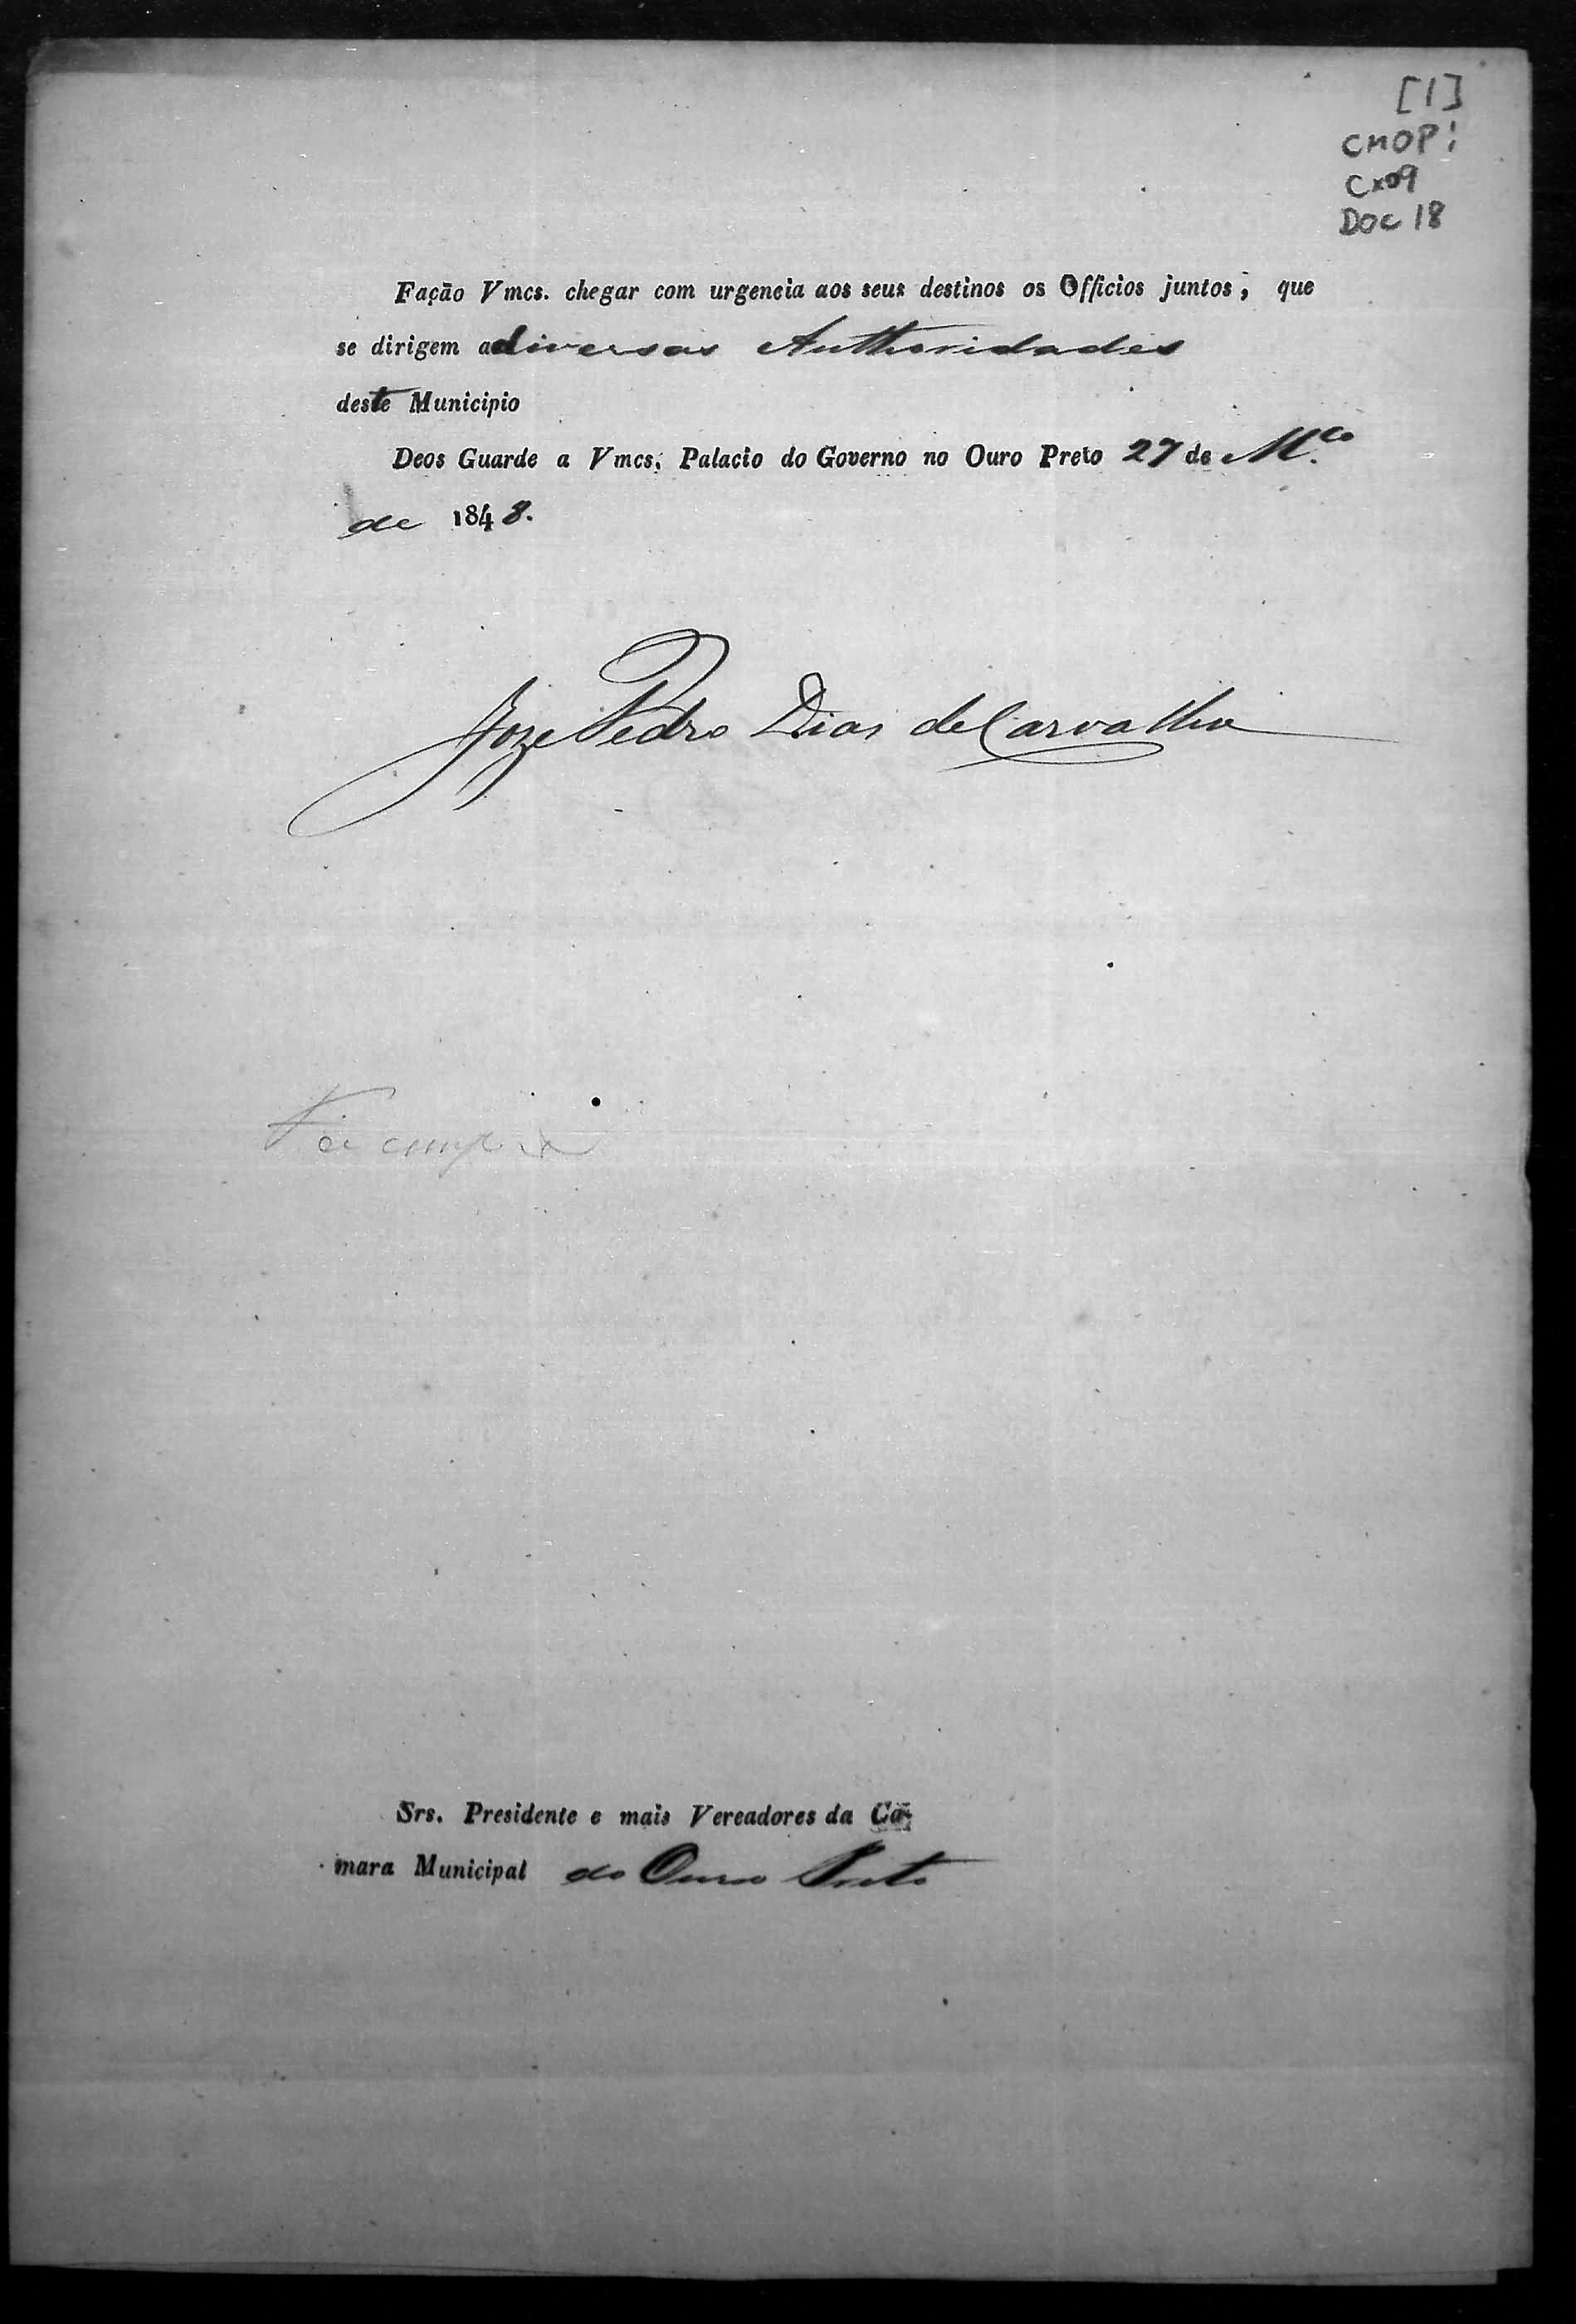 [1]
CMOP:
Cx09
Doc 18
Fação Vmcs. chegar com urgencia aos seus destinos os Officios juntos, que
se dirigem a diversas Authoridades
deste Municipio
Deos Guarde a Vmcs. Palacio do Governo no Ouro Preto 27 de M.ço
de 1848.
Joze Pedro Dias de Carvalho
Srs. Presidente e mais Vereadores da Ca-
mara Municipal do Ouro Preto